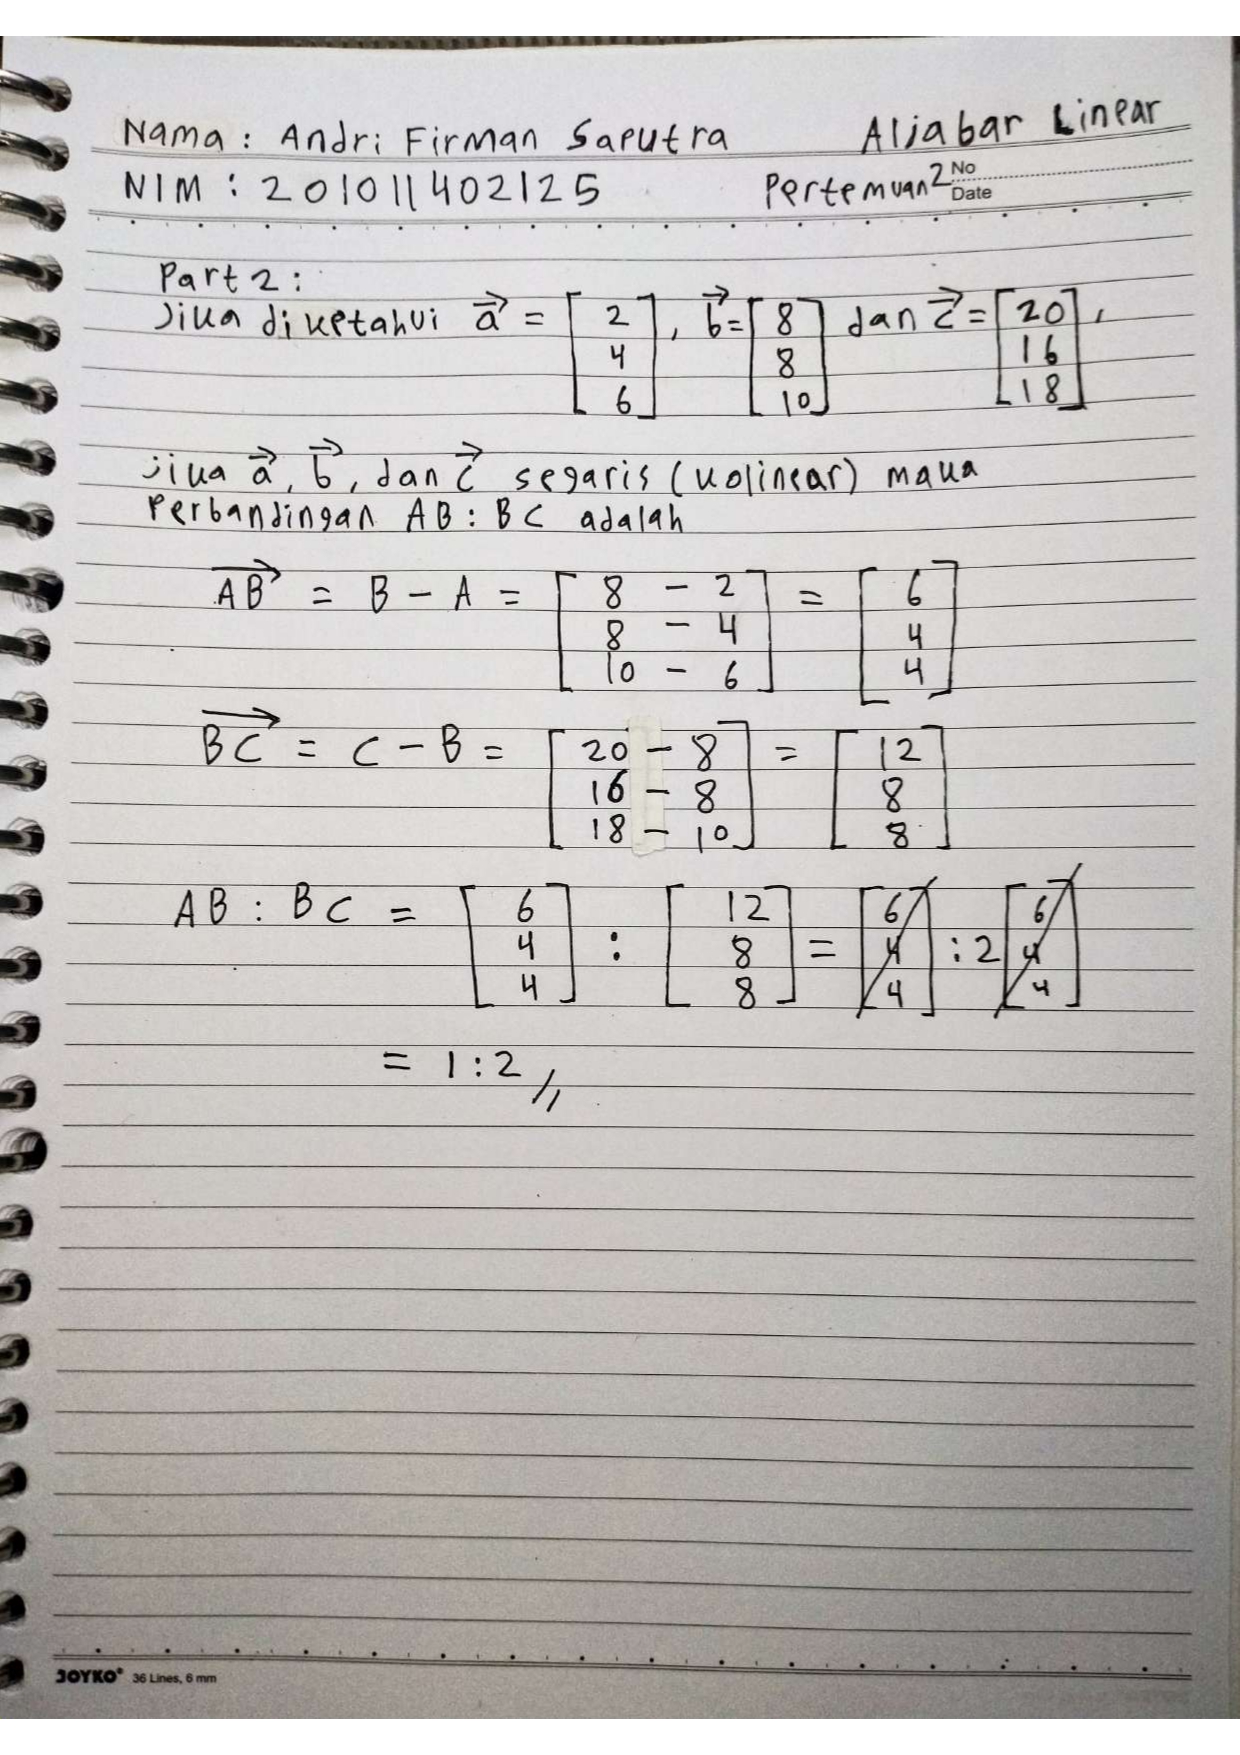 Nama : Andri Firman Saputra Aljabar Linear
NIM : 201011402125 Pertemuan 2 No
Date
Part 2 :
Jika diketahui a⃗ = [2 4 6], b⃗ = [8 8 10] dan c⃗ = [20 16 18],
jika a⃗, b⃗, dan c⃗ segaris (kolinear) maka
Perbandingan AB : BC adalah
AB⃗ = B - A = [8 - 2 8 - 4 10 - 6] = [6 4 4]
BC⃗ = C - B = [20 - 8 16 - 8 18 - 10] = [12 8 8]
AB : BC = [6 4 4] : [12 8 8] = [6 4 4] : 2 [6 4 4]
= 1 : 2 //
JOYKO® 36 Lines, 6 mm